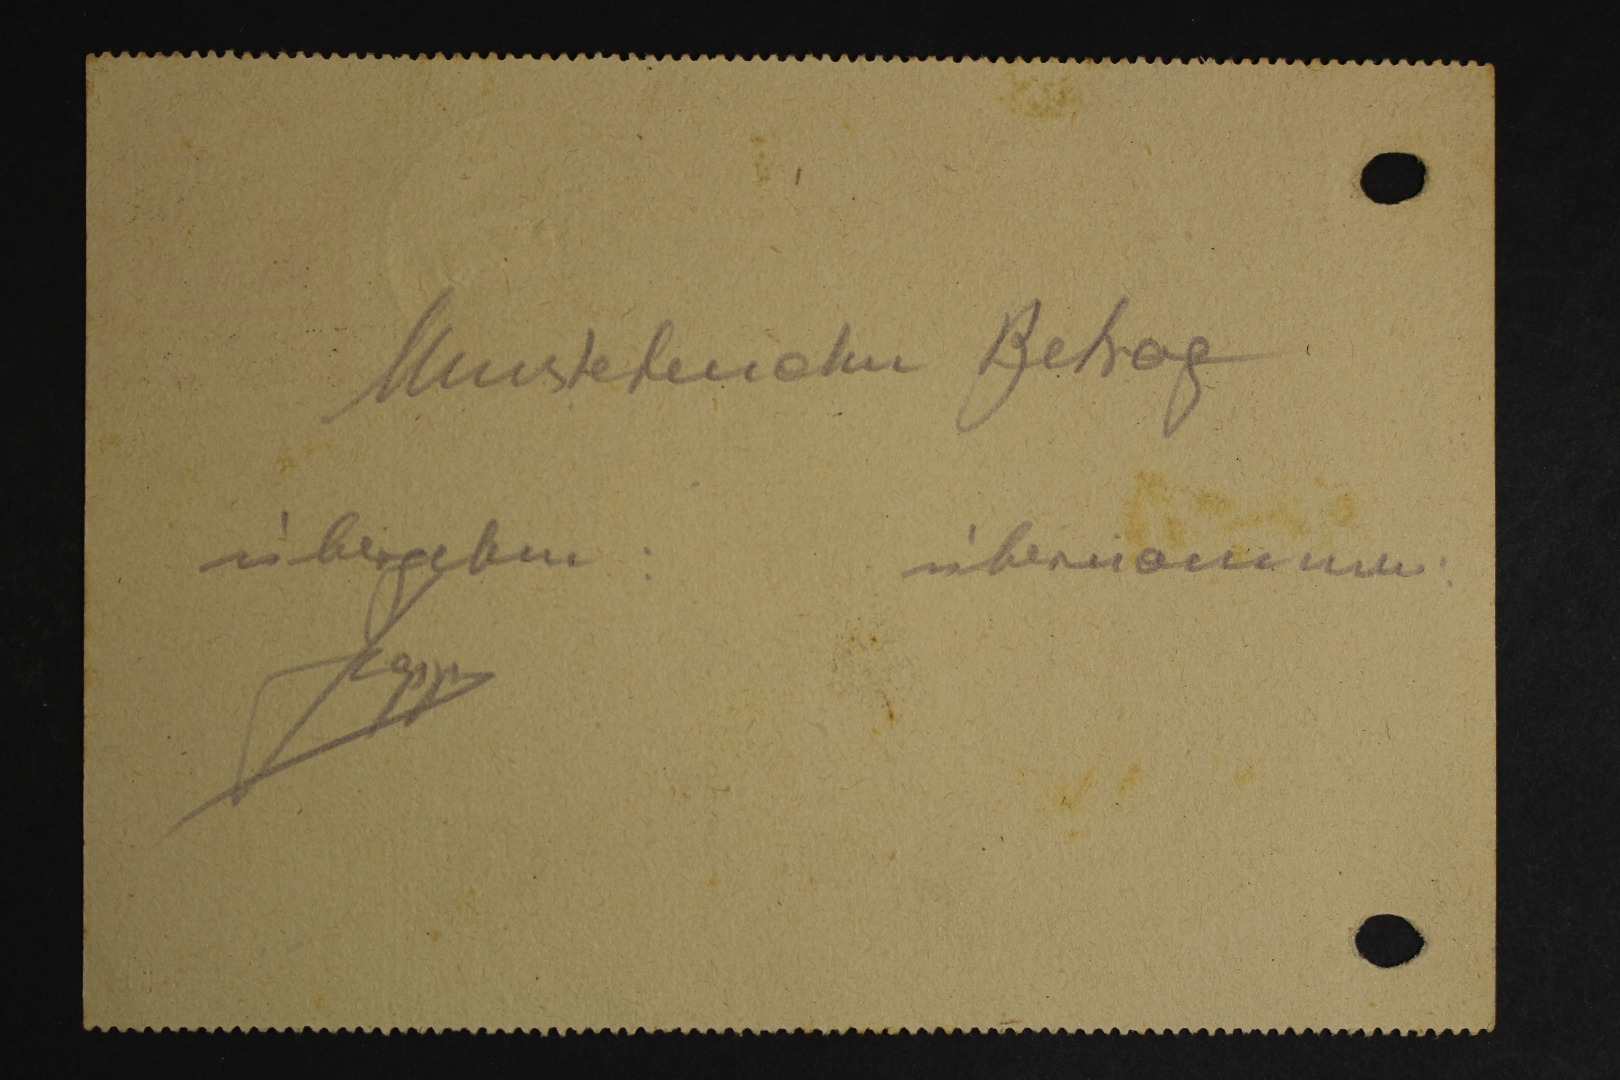 Umstehenden Betrag
übergeben : übernommen: